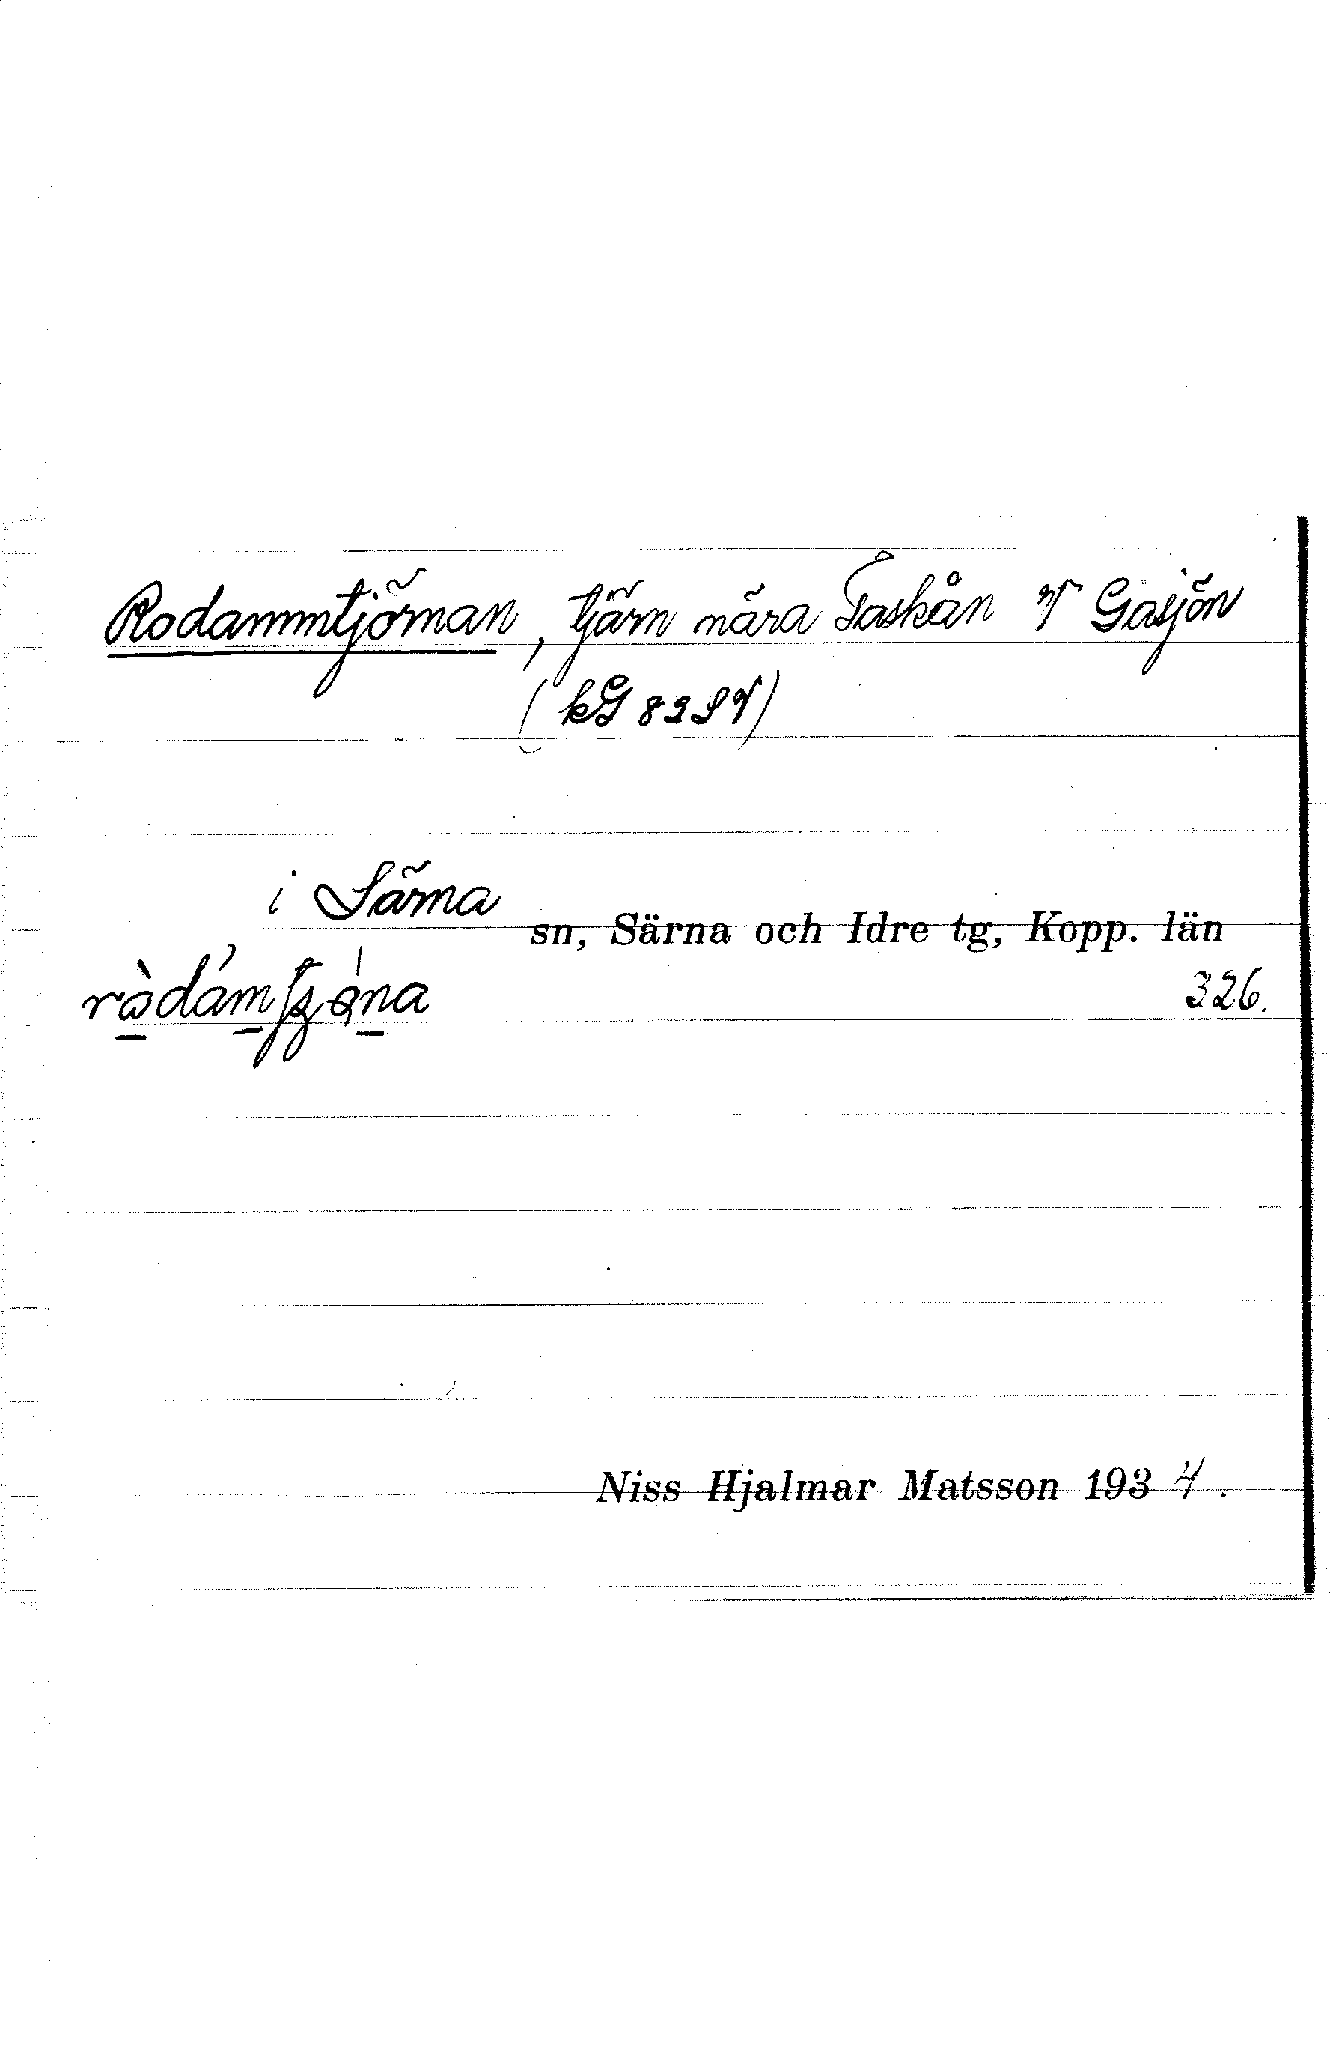 Rodammtjörnan, tjärn nära Taskån V Gåsjön
(kG 82 SV)
i Särna sn, Särna och Idre tg, Kopp. län
326.
Niss Hjalmar Matsson 1934.